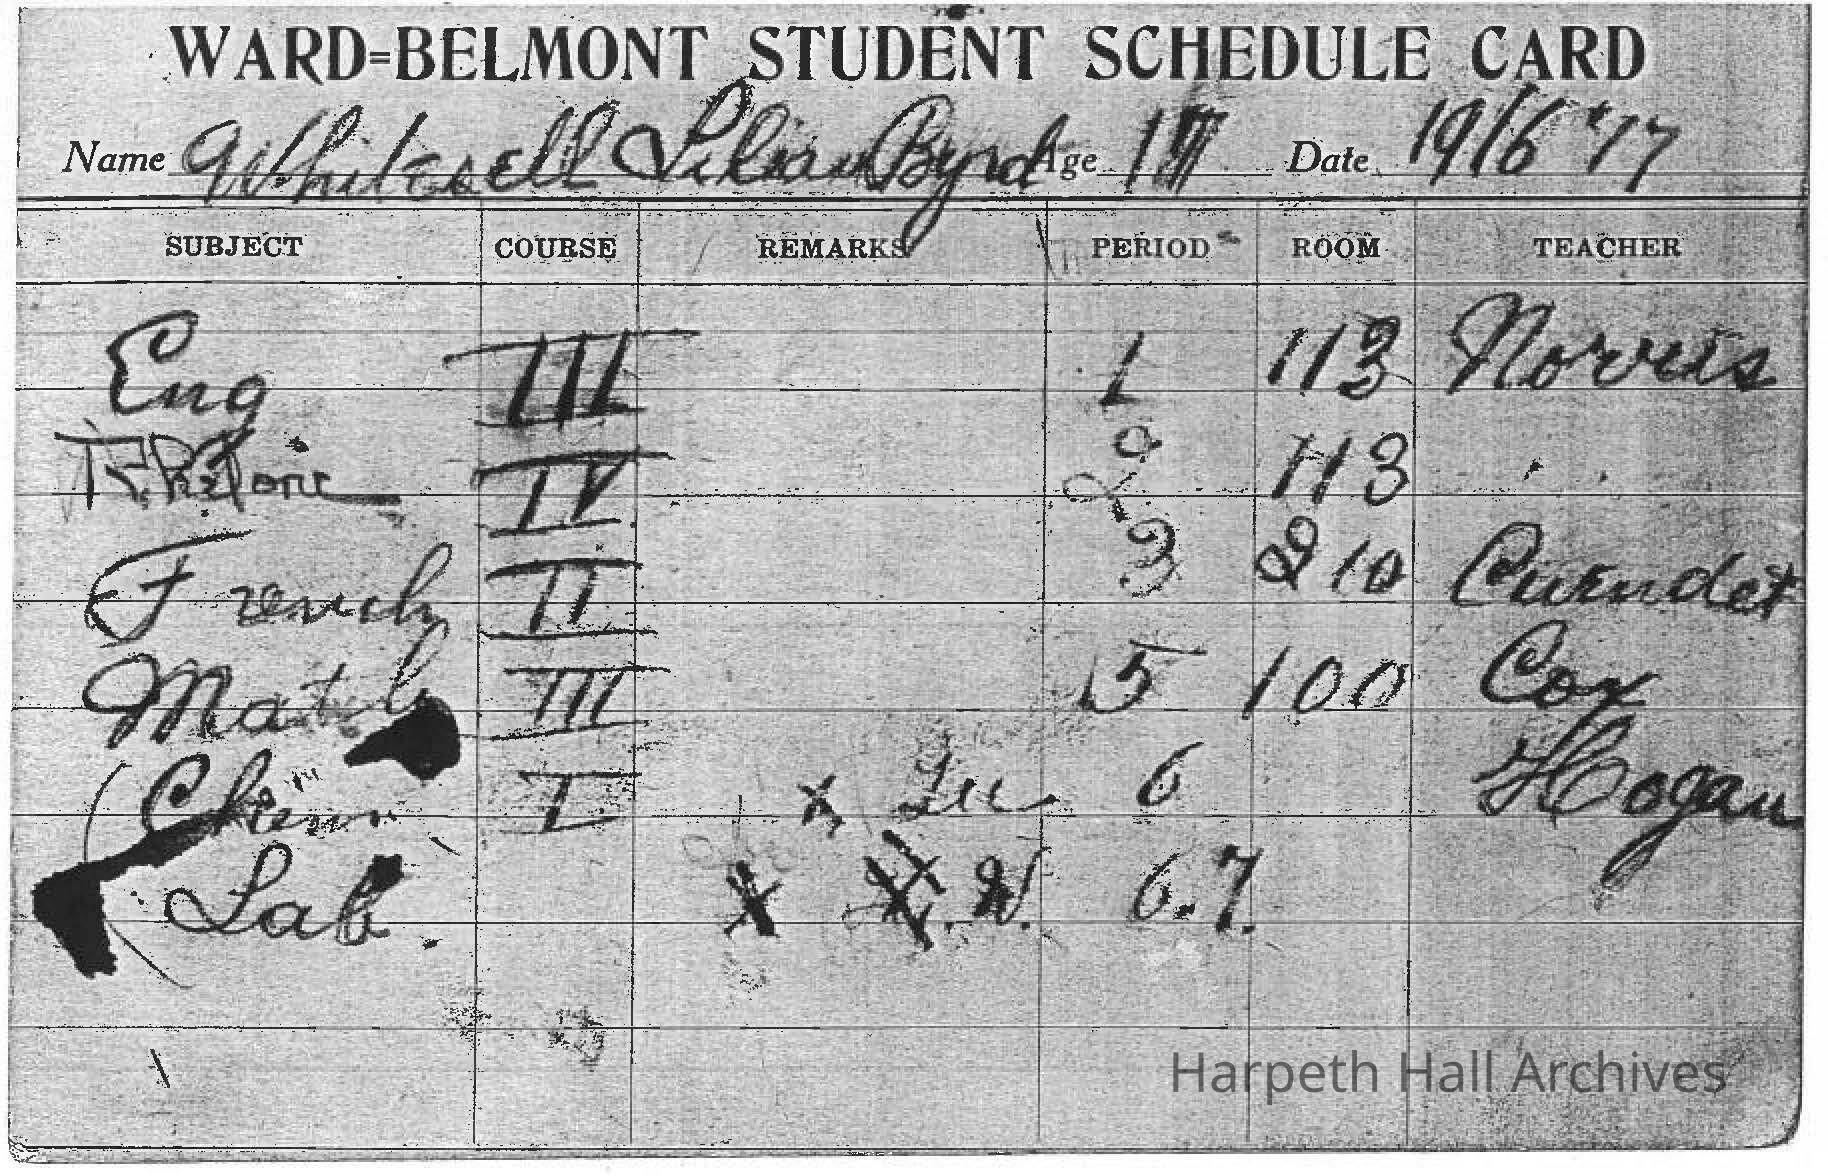 WARD=BELMONT STUDENT SCHEDULE CARD
Name Whitesell Lilian Byrd Age Date 1916 '17
SUBJECT COURSE REMARKS PERIOD ROOM TEACHER
Eng III 1 113 Norris
IV 2 113
French II 3 210 Cuendet
Math III 5 100 Cox
Chem. I 6 Hogan
Lab. 6.7.
Harpeth Hall Archives